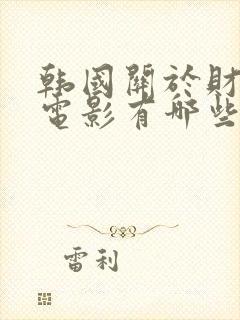 韩國關於財
電影有哪些
雷利